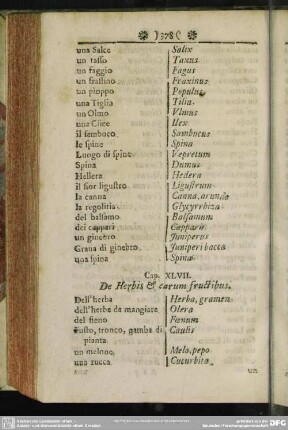 ❋ )378( ❋
una Salce Salix
un tasso Taxus
un faggio Fagus
un frassino Fraxinus
un pioppo Populus
una Tiglia Tilia
un Olmo Vlmus
una Elice Ilex
il sambuco Sambucus
le spine Spina
Luogo di spine Vepretum
Spina Dumus
Hellera Hedera
il fior ligustro Ligustrum
la canna Canna, arundo
la regolitia Glycyrrhiza
del balsamo Balsamum
dei cappari Capparis
un ginebro Juniperus
Grana di ginebro Juniperi bacca
una spina Spina
Cap. XLVII.
De Herbis & earum fructibus.
Dell'herba Herba, gramen
dell'herbe da mangiare Olera
del fieno Fœnum
Fusto, tronco, gamba di Caulis
pianta
un melone Melo, pepo
una zucca Cucurbita
un